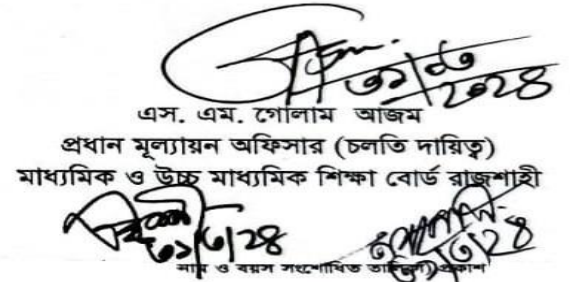 ৩১/০৩
২০২৪
এস. এম. গোলাম আজম
প্রধান মূল্যায়ন অফিসার (চলতি দায়িত্ব)
মাধ্যমিক ও উচ্চ মাধ্যমিক শিক্ষা বোর্ড রাজশাহী
৩১/৩/২৪ ৩১/৩/২৪
নাম ও বয়স সংশোধিত প্রকাশ